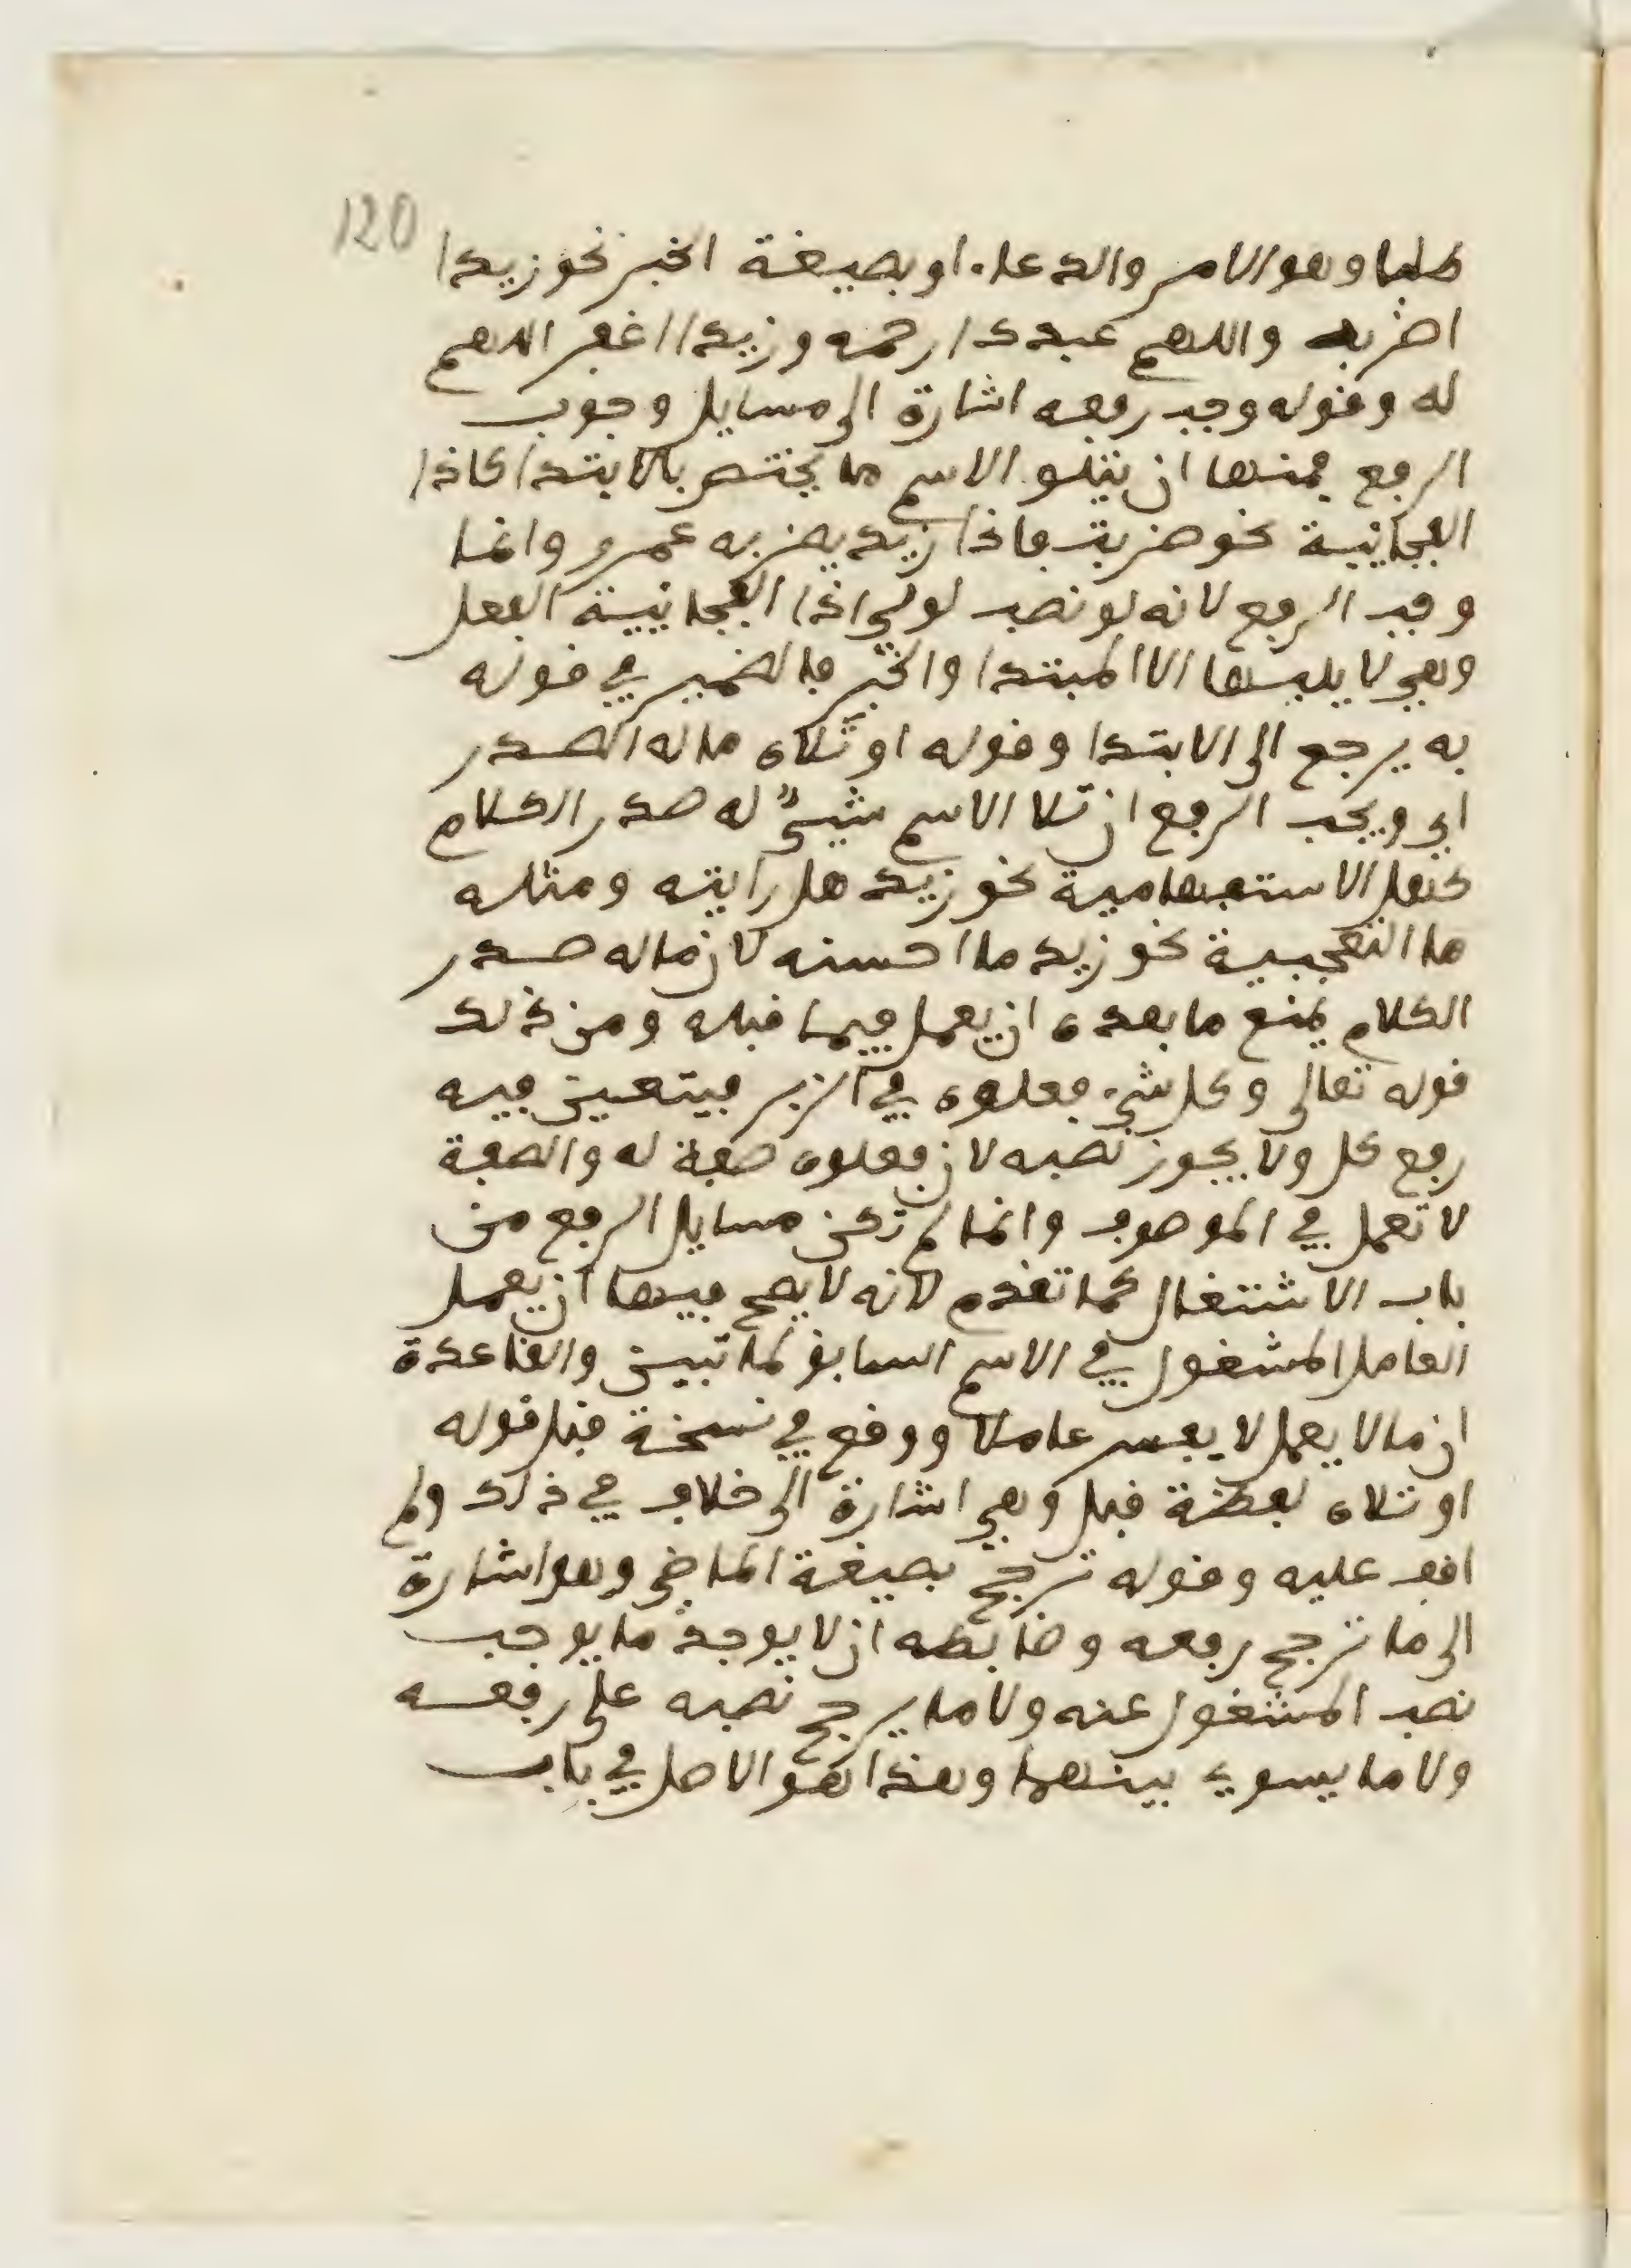 120
طلبا وهو الامر والدعاء او بصيغة الخبر نحو زيدا
اضربه واللهم عبدك ارحمه وزيدا اغفر اللهم
له وقوله وجب رفعه اشارة الى مسايل وجوب
الرفع فمنها ان يتلو الاسم ما يختص بالابتدا كاذا
الفجائية نحو ضربت فاذا زيد يضربه عمرو وانما
وجب الرفع لانه لو نصب لولي اذا الفجائية الفعل
وهي لا يليها الا المبتدا والخبر فالضمير في قوله
به يرجع الى الابتدا وقوله او تلاه ماله الصدر
اي ويجب الرفع ان تلا الاسم شيءٌ له صدر الكلام
كهل الاستفهامية نحو زيد هل رايته ومثله
ما التعجبية نحو زيد ما احسنه لان ماله صدر
الكلام يمنع ما بعده ان يعمل فيما قبله ومن ذلك
قوله تعالى وكل شيء فعلوه في الزبر فيتعين فيه
رفع كل ولا يجوز نصبه لان فعلوه صفة له والصفة
لا تعمل في الموصوف وانما لم تكن مسايل الرفع من
باب الاشتغال كما تقدم لانه لا يصح فيها ان يعمل
العامل المشغول في الاسم السابق لما تبين والقاعدة
ان مالا يعمل لا يفسر عاملا ووقع في نسخة قبل قوله
او تلاه لفظة قيل وهي اشارة الى خلاف في ذلك ولم
اقف عليه وقوله ترجح بصيغة الماضي وهو اشارة
الى ما ترجح رفعه وضابطه ان لا يوجد ما يوجب
نصب المشغول عنه ولا ما يرجح نصبه على رفعه
ولا ما يسوي بينهما وهذا هو الاصل في باب